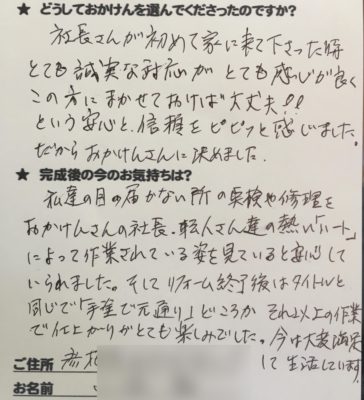 ★ どうしておかけんを選んでくださったのですか?
社長さんが初めて家に来て下さった時
とても誠実な対応が とても感じが良く
この方にまかせておけば大丈夫!!
という安心と、信頼をピピッと感じました。
だからおかけんさんに決めました。
★ 完成後の今のお気持ちは?
私達の目の届かない所の点検や修理を
おかけんさんの社長、職人さん達の熱い「ハート」
によって作業されている姿を見ていると安心して
いられました。そしてリフォーム終了後はタイトルと
同じで「手塗で元通り」どころか それ以上の作業
で仕上がりがとても楽しみでした。今は大変満足
して生活しています。
ご住所
お名前